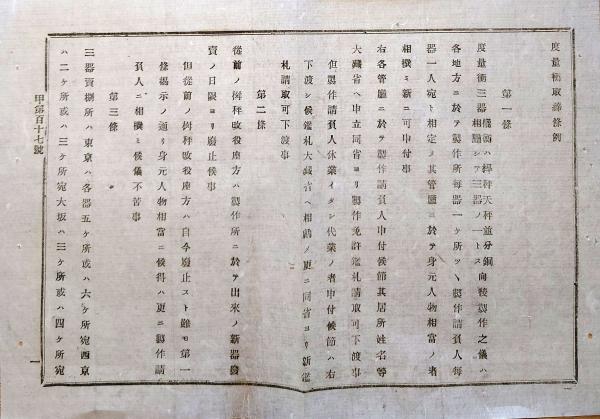 度量衡取締条例
第一條
度量衡三器 衡器ハ桿秤天秤並分銅相屬シテ三器ノ一トス 向後製作之儀ハ
各地方ニ於テ製作所毎器一ケ所ツヽ製作請負人毎
器一人宛ト相定メ其管廳ニ於テ身元人物相當ノ者
相機ミ新ニ可申付事
右各管廳ニ於テ製作請負人申付候節其居所姓名等
大藏省ヘ申立同省ヨリ製作免許鑑札請取可下渡事
但製作請負人休業イタシ代業ノ者申付候節ハ右
下渡シ候鑑札大藏省ヘ相納メ更ニ同省ヨリ新鑑
札請取可下渡事
第二條
從前ノ桝秤改役座方ハ製作所ニ於テ出來ノ新器發
賣ノ日限ヨリ廢止候事
但從前ノ桝秤改役座方ハ自今廢止スト雖モ第一
條揭示ノ通リ身元人物相當ニ候得ハ更ニ製作請
負人ニ相機ミ候儀不苦事
第三條
三器賣捌所ハ東京ハ各器五ケ所或ハ六ケ所宛西京
ハ二ケ所或ハ三ケ所宛大坂ハ三ケ所或ハ四ケ所宛
甲第百十七號
一